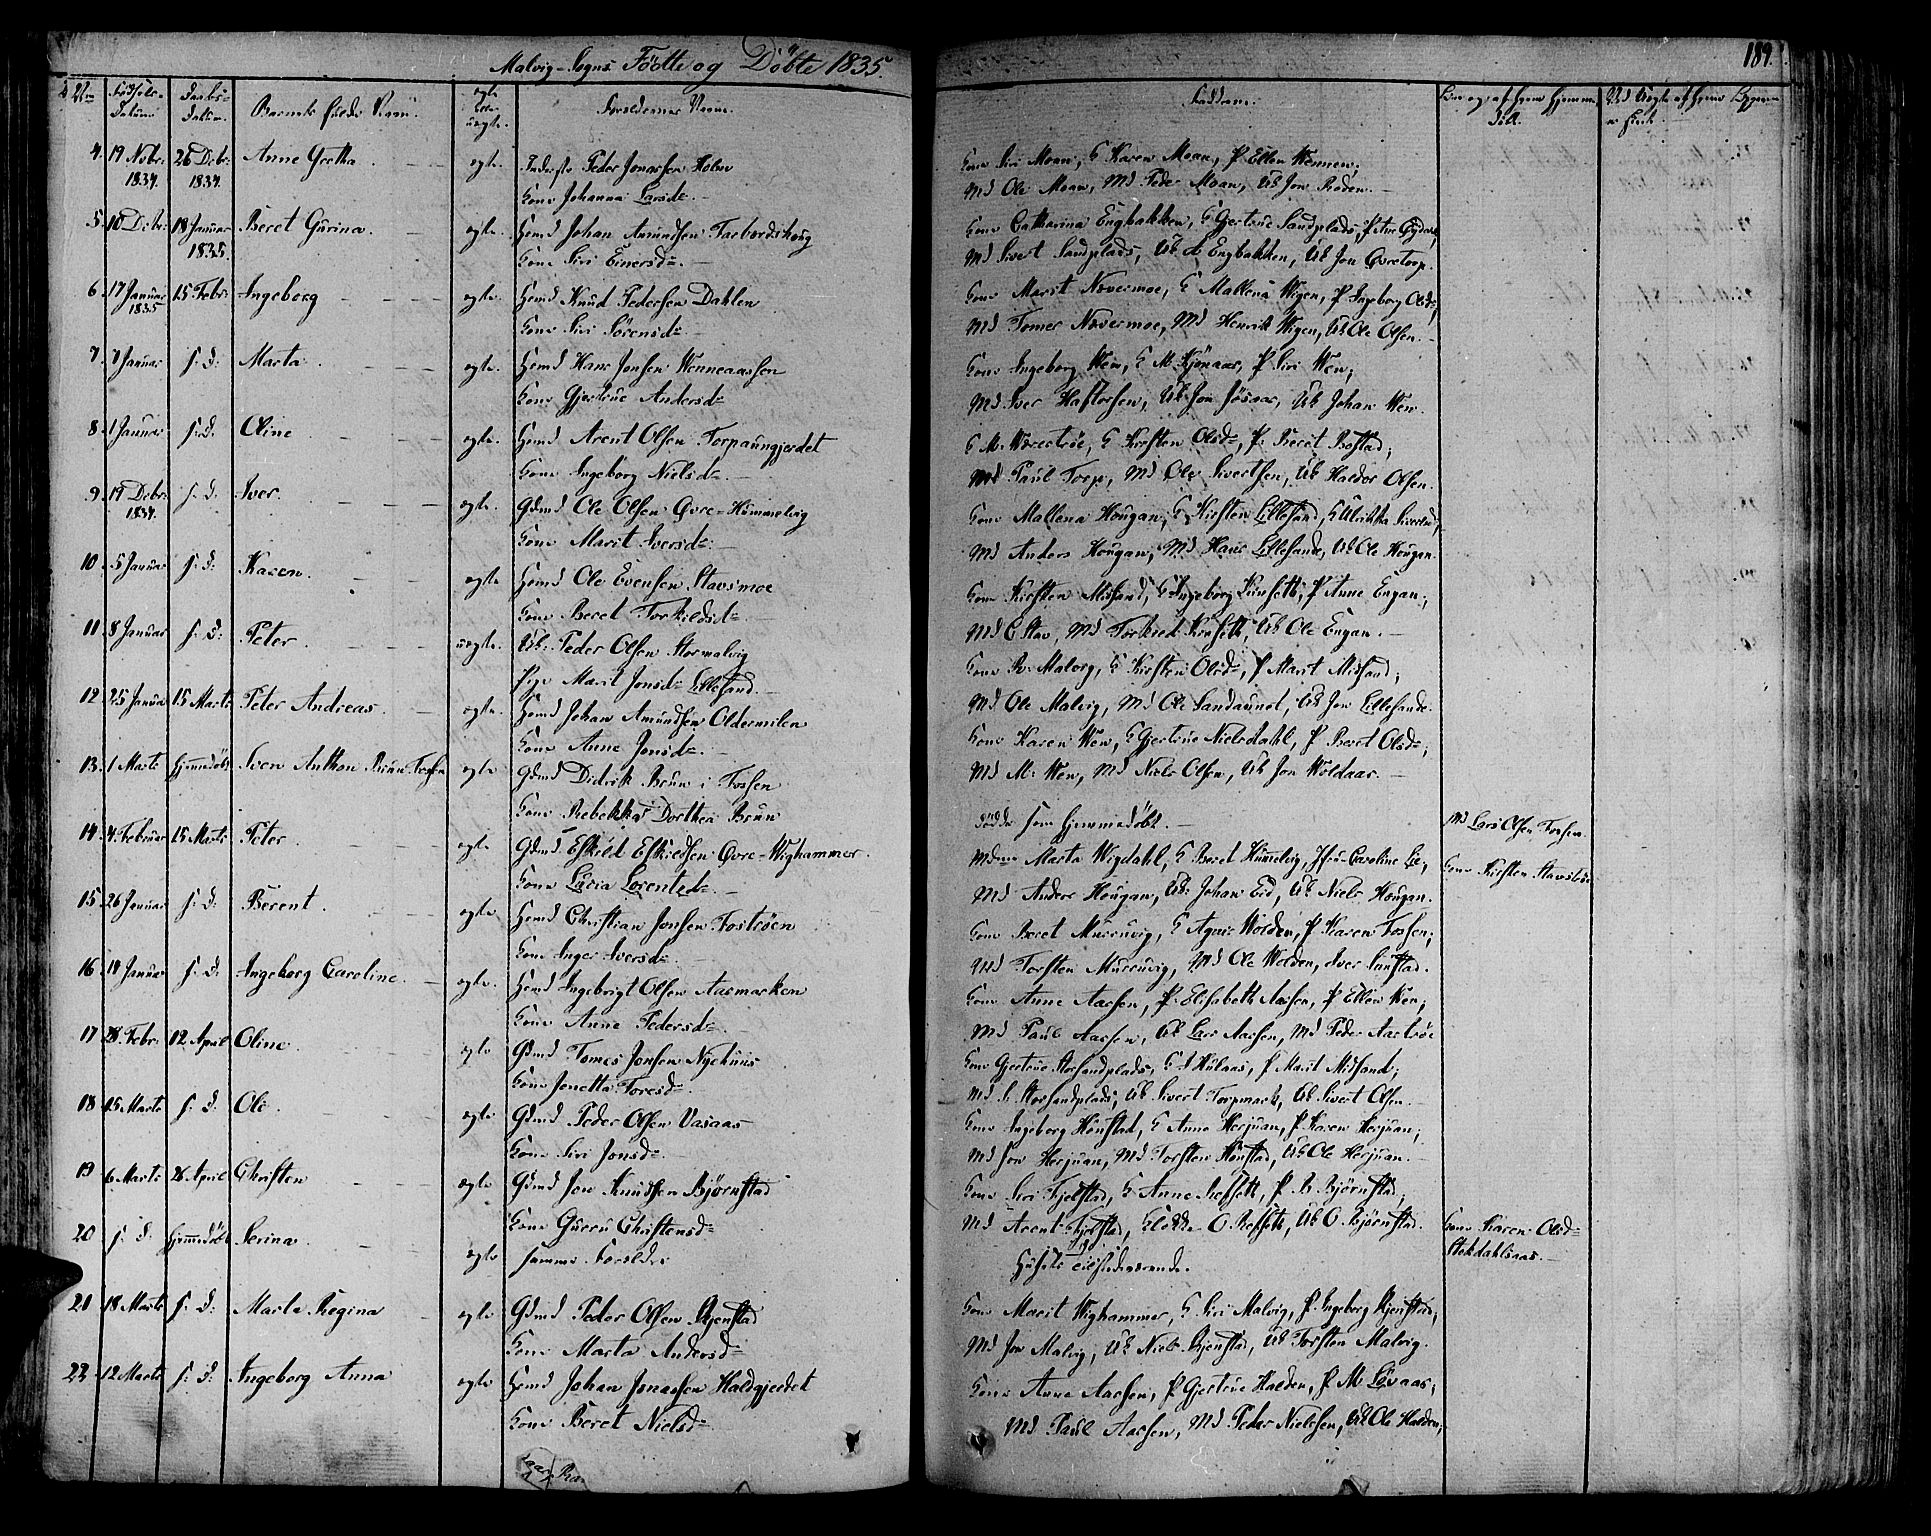 Malvig-Sogns Födte og Döbte 1835.
189.
Födsels-Datum
Daabs-Datum
Barnets fulde Navn
ægte eller uægte
Forældrenes Navne
Faddere
4. 19 Nobr: 1834. 26 Dcbr: 1834. Anne Gretha ægte. Inderste Peder Jonassen Holm
Kone Johanna Larsd.
Kone Siri Moan, G Karen Moan, P. Ellen Wennen;
Md Ole Moan, Md Peder Moan, Uk Jon Roden.
5. 10 Dcbr: 18 Januar 1835. Beret Gurina ægte. Hsmd Johan Amundsen Tarbordshoug
Kone Siri Einersd.
Kone Catharina Engbakken, G Gjertrue Sandplads,
Md Sivert Sandplads, Uk Engbakken, Uk Jon Qvretorp.
6. 17 Januar 1835 15 Febr: Ingeborg ægte. Hsmd Knud Pedersen Dahlen
Kone Siri Sörensd.
Kone Marit Nævermoe, G Mallena Wigen, P. Ingeborg Olsd;
Md Tomer Nævermoe, Md Henrik Wigen, Uk Ole Olsen.
7. 7 Januar s. D. Marta ægte. Hsmd Hans Jonsen Wenneaassen
Kone Gjertrue Andersd.
Kone Ingeborg Wen, G M. Kjönaas, P. Siri Wen;
Md Iver Haftorsen, Uk Jon Jösaas, Uk Johan Wen.
8. 1 Januar s. D. Oline ægte. Hsmd Arent Olsen Torpaungjerdet
Kone Ingeborg Nielsd.
G M. Wæretröe, G Kirsten Olsd, P. Berit Bostad;
Md Paul Torp, Md Ole Sivertsen, Uk Haldor Olsen.
9. 19 Dcbr: 1834. s. D. Iver ægte. Gdmd Ole Olsen Qvre-Hummelvig
Kone Marit Iversd.
Kone Mallena Hougan, G Kirsten Lillesand, G Ulrikka
Md Anders Hougan, Md Hans Lillesande, Uk Ole Hougan.
10. 5 Januar s. D. Karen ægte. Hsmd Ole Evensen Stavsmoe
Kone Beret Torkildsd.
Kone Kirsten Midsand, G Ingeborg Kunseth, P. Anne Engan;
Md E Stav, Md Torkied Kruseth, Uk Ole Engan.
11. 8 Januar s. D. Peter uægte. Uk. Peder Olsen Stormalvig
Pige Marit Jonsd Lillesand.
Kone B. Malvig, G Kirsten Olsd, P Marit Midsand;
Md Ole Malvig, Md Ole Sandaunet, Uk Jon Lillesande.
12. 25 Januar 15 Marts Peter Andreas ægte. Hsmd Johan Amundsen Oldermilen
Kone Anne Jonsd.
Kone Karen Wen, G Gjertrue Nielsdahl, P Beret Olsd;
Md M. Wen, Md Niels Olsen, Uk Jon Woldaas.
13. 1 Marts Hjemmedöbt Sven Anthon Bruun Fossen ægte Gdmd Didrik Bruun i Fossen
Kone Rebekka Dorthea Bruun
Födde som hjemmedöbt.
Md Lars Olsen Fossen.
14. 4 Februar 15 Marts Peter ægte Gdmd Eskild Eskildsen Qvre-Wighammer.
Kone Lucia Lorentsd.
Marta Wigdahl, G Beret Hummelvig, Caroline Lie;
Md Anders Hougan, Uk: Johan Eid, Uk Niels Hougan.
Kone Kirsten Stavströen
15. 26 Januar s. D. Berent ægte Hsmd Christian Jonsen Foströen
Kone Inger Iversd.
Kone Beret Murruvig, G Agnis Wolden, P Karen Fossen;
Md Torsten Murruvig, Md Ole Wolden,
16. 14 Januar s. D. Ingeborg Caroline ægte. Hsmd Ingebrigt Olsen Aasmarken
Kone Anne Pedersd.
Kone Anne Aassen, P. Elisabeth Aassen, P Ellen Wen;
Md Paul Aassen, Uk Lars Aassen, Md Peder Aaströe
17. 28 Febr: 12 April Oline ægte Gdmd Tomes Jonsen Nyehuus
Kone Jonetta Toresd.
Kone Gjertrue Storsandplads, G A Hulaas, P Marit Midsand;
Md S. Storsandplads, Uk Sivert Torpmark, Uk Sivert Olsen.
18. 15 Marts s. D. Ole ægte Gdmd Peder Olsen Vasaas
Kone Siri Jonsd.
Kone Ingeborg Hönstad, G Anne Herjuan, P Karen Herjuan;
Md Jon Herjuan, Md Torsten Hönstad, Uk Ole Herjuan.
19. 6 Marts 26 April Christen ægte Gdmd Jon Knudsen Björnstad
Kone Guruu Christensd
Kone Siri Fjelstad, G Anne Refseth, P B. Björnstad;
Md Arent Fjelstad, O. Refseth, Uk O. Björnstad.
20 s. D. Hjemmedöbt Serina ægte samme Forældre
Husets Tilstedeværende.
Kone Karen Olsd Stokdahlsaas.
21 18 Marts s. D. Marta Regina ægte Gdmd Peder Olsen Bjenstad
Kone Marta Andersd
Kone Marit Wighammer, G Siri Malvig, P. Ingeborg Bjenstad;
Md Jon Malvig, Uk Niels Bjenstad, Uk Torsten Malvig.
22 12 Marts s. D. Ingeborg Anna ægte Hsmd Johan Jonassen Haldgjerdet
Kone Beret Nielsd
Kone Anne Aassen, P Gjertrue Halden, P M. Lövaas;
Md Paul Aassen, Md Peder Nielssen, Uk Ole Halden;